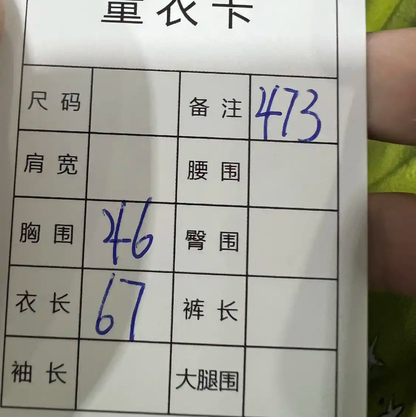 童衣卡
尺码 备注 473
肩宽 腰围
胸围 46 臀围
衣长 67 裤长
袖长 大腿围